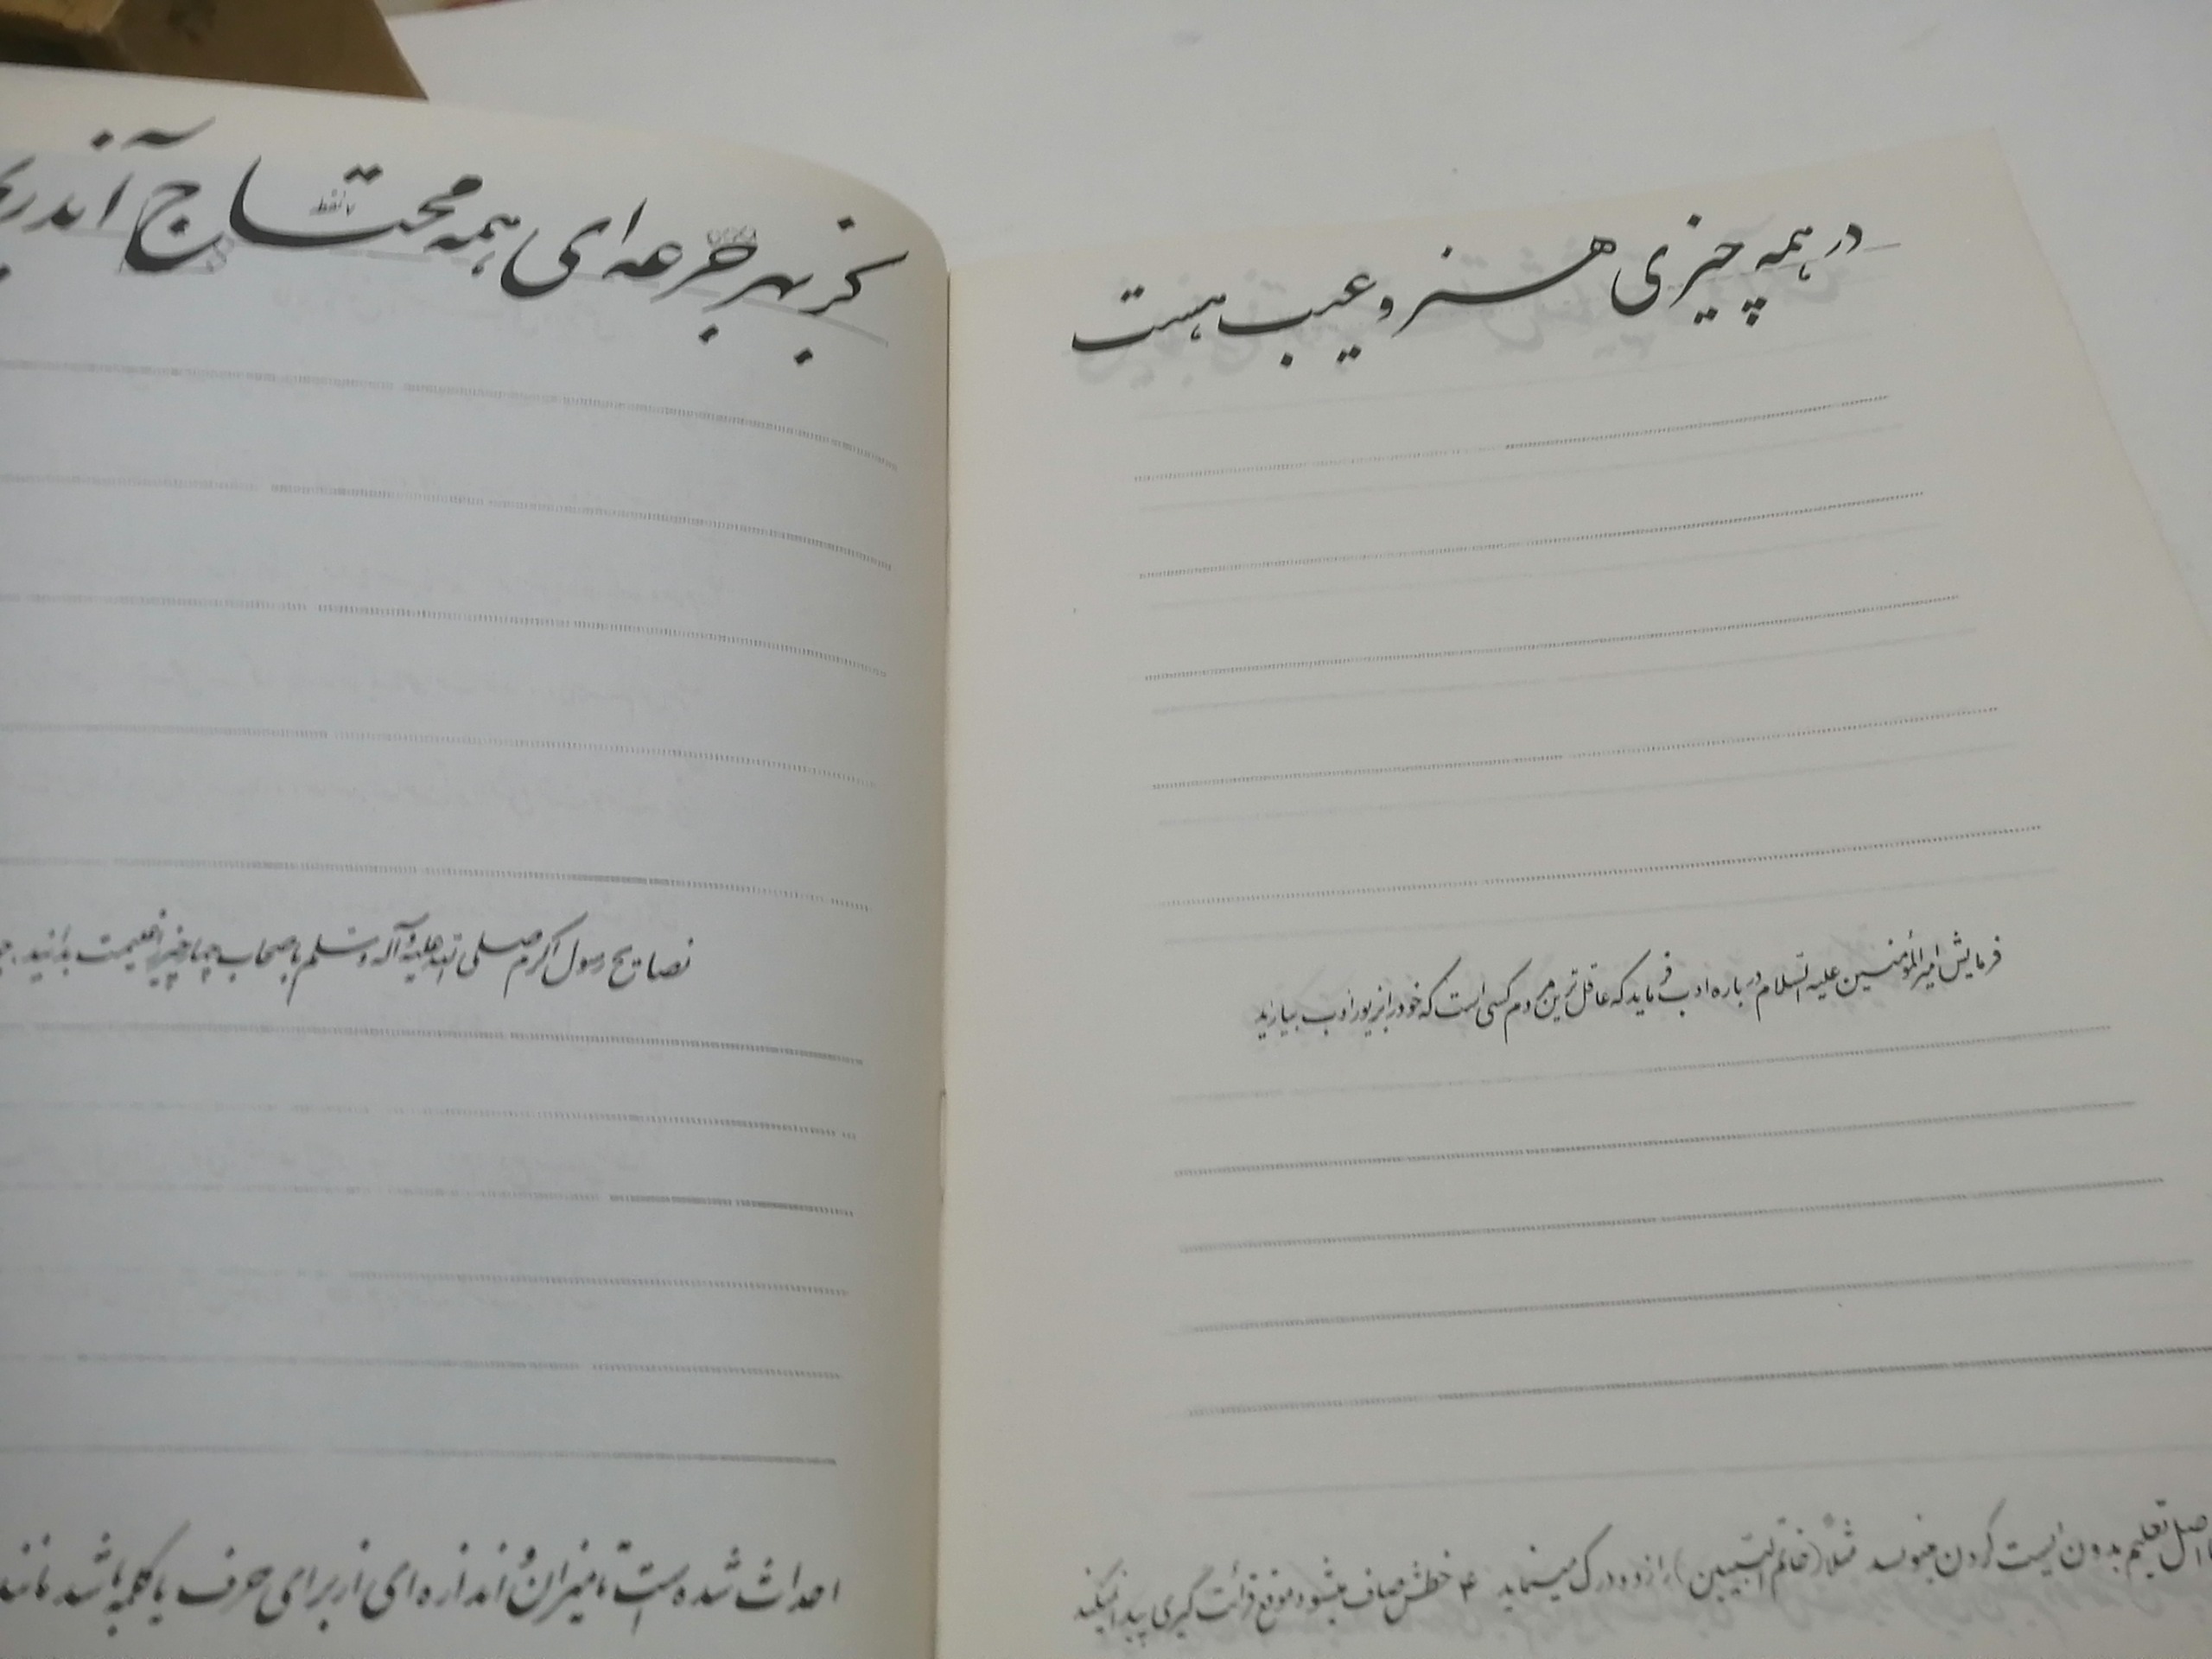 در همه چیزی هنر و عیب هست
فرمایش امیرالمؤمنین علیه السلام درباره ادب فرماید که عاقل ترین مردم کسی است که خود را بزیور ادب بیاراید
اصل تعلیم بدون ایست کردن مینویسد مثلاً (خاتم النبیین) را زود درک مینماید ۴ خطش صاف میشود و موقع قرائت گیری پیدا نمیکند
کز بهر جرعه ای همه محتاج آن دریم
نصایح رسول اکرم صلی الله علیه و آله و سلم باصحاب چهار چیز را غنیمت بدانید
احداث شده است تا میزان و اندازه ای از برای حرف یا کلمه باشد مانند